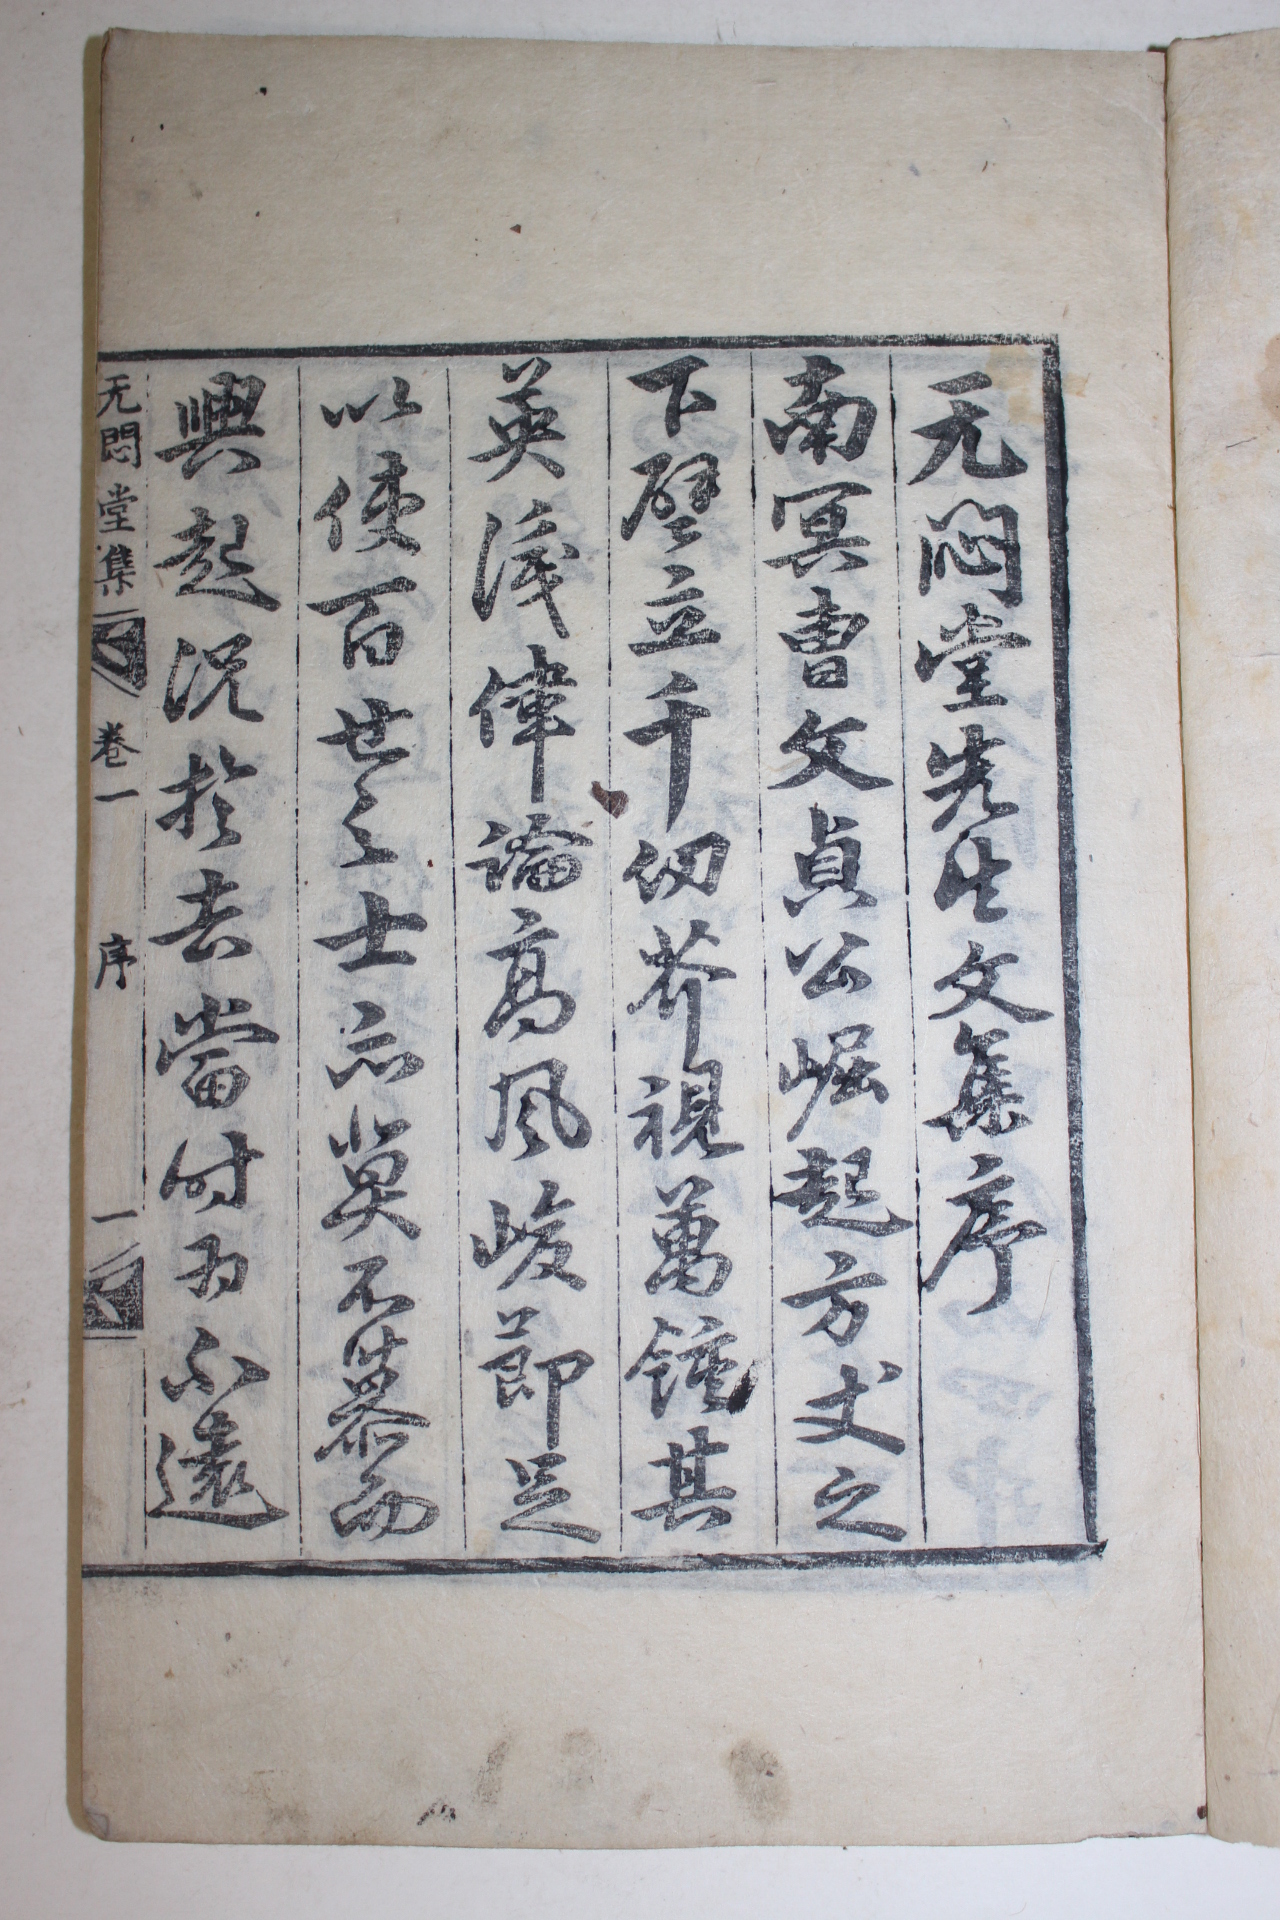 无悶堂先生文集序
南冥曹文貞公崛起方丈之
下壁立千仞芥視萬鍾其
英偉論高風峻節足
以使百世之士亦莫不而
興起況於去當時爲不遠
无悶堂集 卷一 序 一